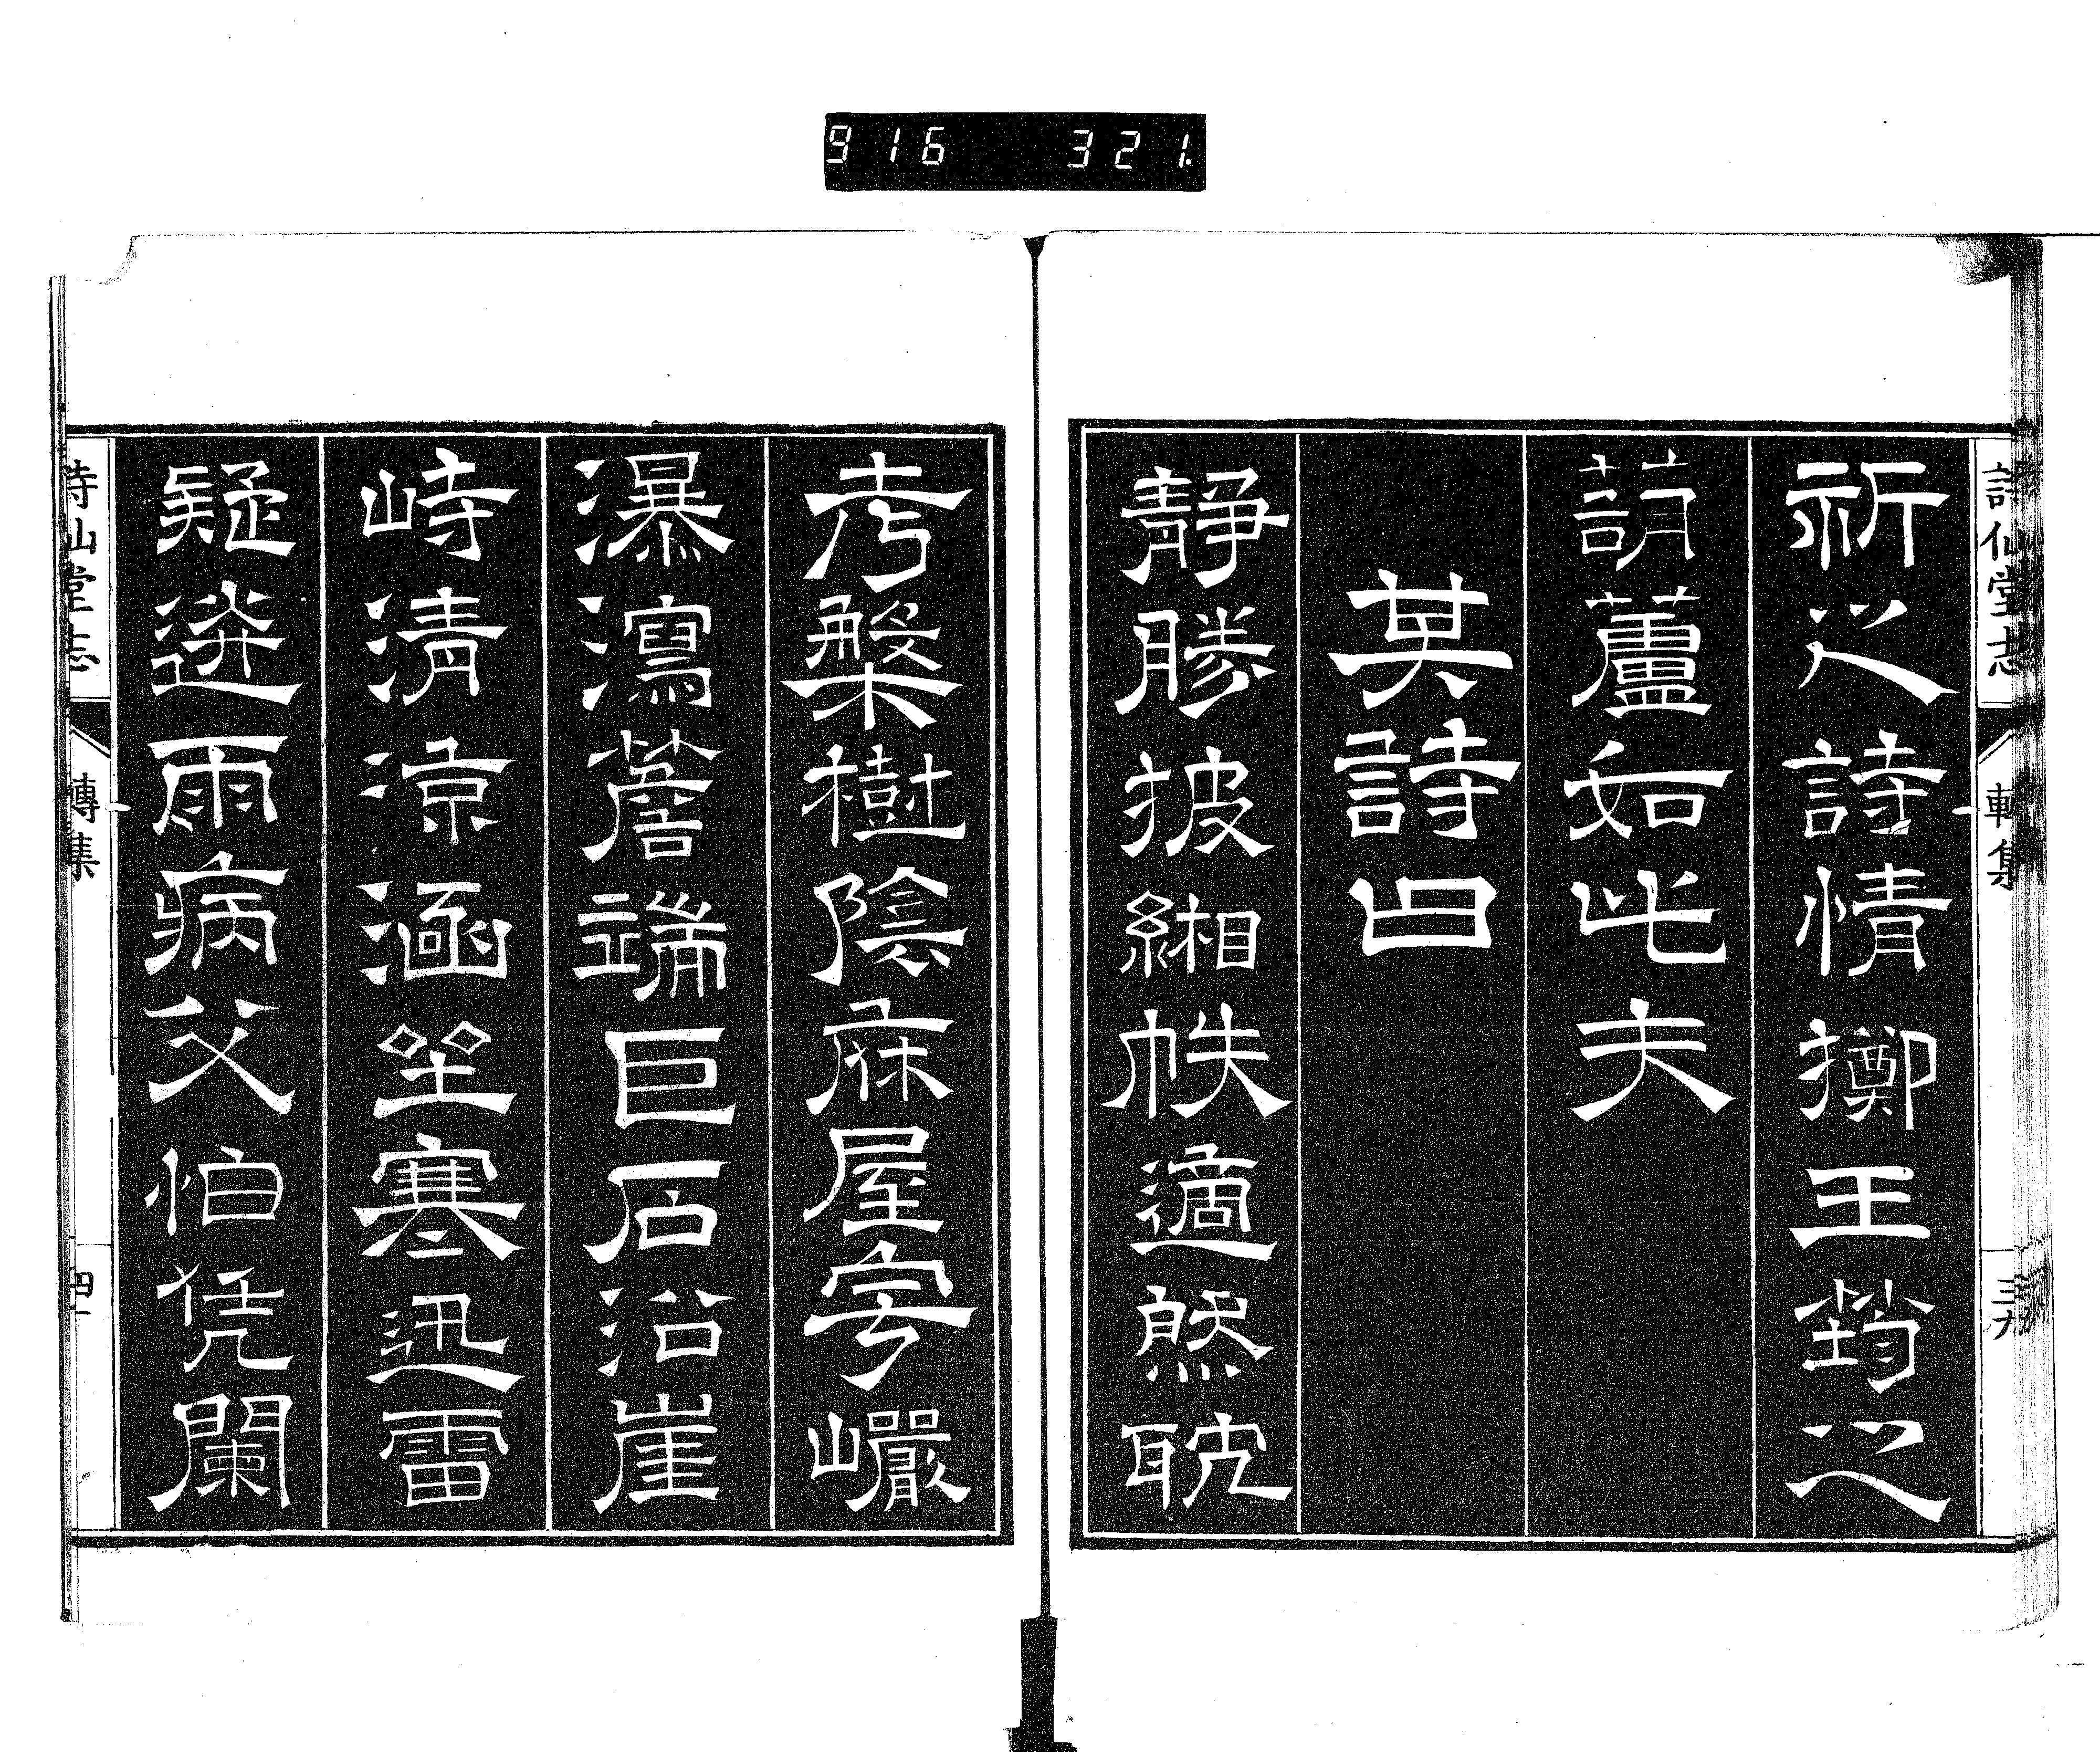 916 321.
詩仙堂志
轉集
三九
祈之詩情擲王筠之
葫蘆如此夫
其詩曰
靜勝披緗帙適然耽
考槃樹陰庥屋宇巗
瀑瀉簷端巨石沿崖
峙清涼涵坐寒迅雷
疑遴雨病父怕凭闌
詩仙堂志
轉集
四十